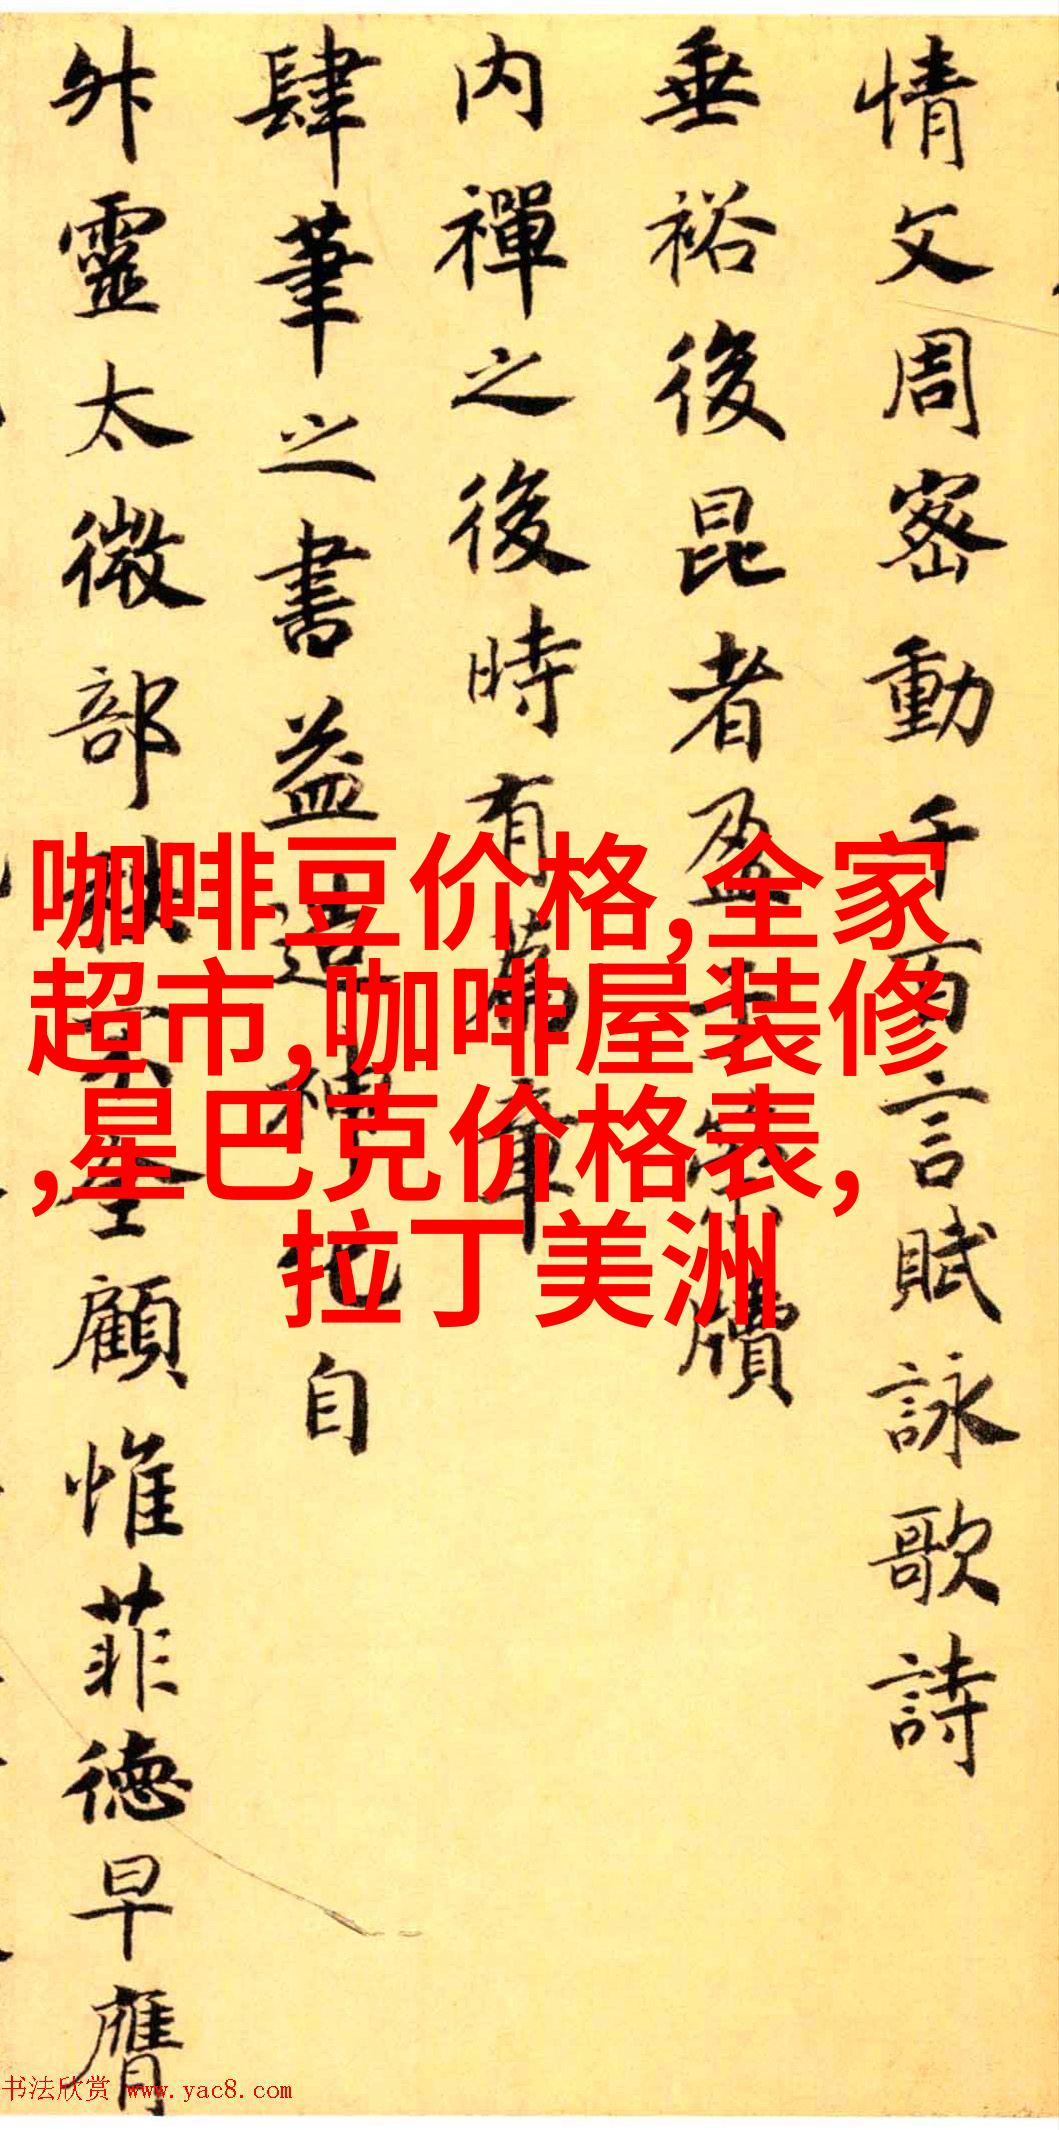 情文周密動千百言賦詠歌詩
垂裕後昆者盈牘
内禪之後時有篇章
肆筆之書益造神化自
升靈太微部顧惟菲德早膺
咖啡豆价格,全家
超市,咖啡屋装修
,星巴克价格表,
拉丁美洲
书法欣赏 www.yac8.com